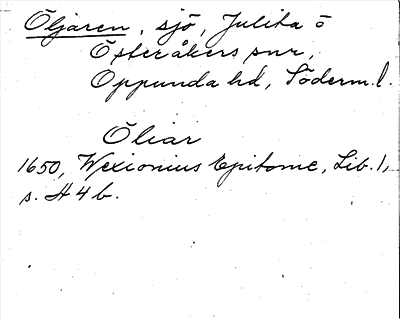 Öljaren, sjö, Julita o
Österåkers snr,
Oppunda hd, Söderm.l.
Öliar
1650, Wexionius Epitome, Lib. 1,
s. H 4 b.